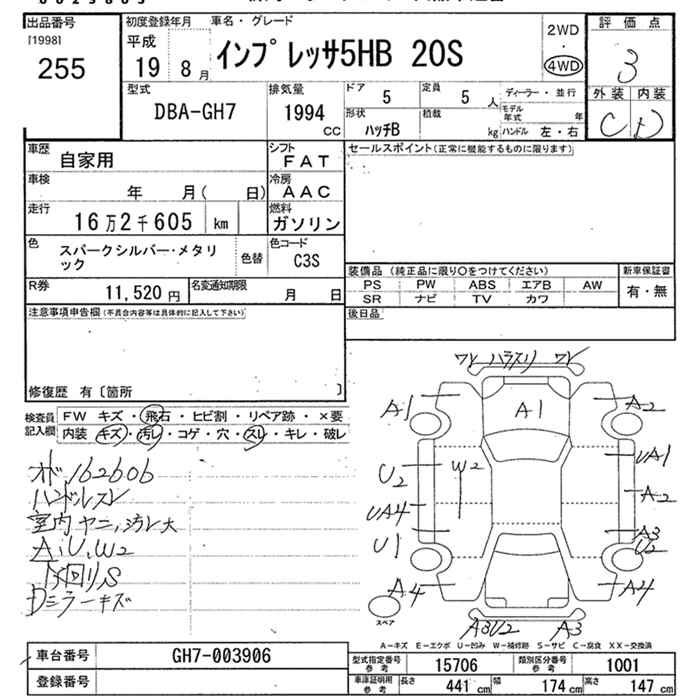 出品番号
[1998]
255
初度登録年月
平成
19 8月
車名・グレード
インプレッサ5HB 20S
2WD
・
4WD
評価点
3
外装 内装
C D
型式
DBA-GH7
排気量
1994
CC
ドア
5
定員
5人
形状
ハッチB
積載
kg
ディーラー・並行
モデル年式
年
ハンドル 左・右
車歴
自家用
シフト
FAT
セールスポイント(正常に機能するものに限ります)
車検
年 月( 日)
冷房
AAC
走行
16万2千605 km
燃料
ガソリン
色
スパークシルバー・メタリック
色替
色コード
C3S
装備品(純正品に限り○をつけてください)
PS PW ABS エアB AW
SR ナビ TV カワ
新車保証書
有・無
R券
11,520円
名変通知期限
月 日
後日品
注意事項申告欄(不具合内容等は具体的に記入して下さい)
修復歴 有〔箇所 〕
検査員記入欄
FW キズ・飛石・ヒビ割・リペア跡・×要
内装 キズ・汚レ・コゲ・穴・スレ・キレ・破レ
オド、162606
ハンドルスレ
室内ヤニ、汚レ大
A、U、W2
下回りS
Dミラーキズ
ワレ ハラスリ ワレ
A1 A1 A2
U2 W2 UA1
A2
UA4 A3
U1 U2
A4 A4
スペア
A3U2 A3
A-キズ E-エクボ U-凹み W-補修跡 S-サビ C-腐食 XX-交換済
車台番号
GH7-003906
登録番号
型式指定番号
参考
15706
類別区分番号
参考
1001
車庫証明用
参考
長さ 441cm 幅 174cm 高さ 147cm